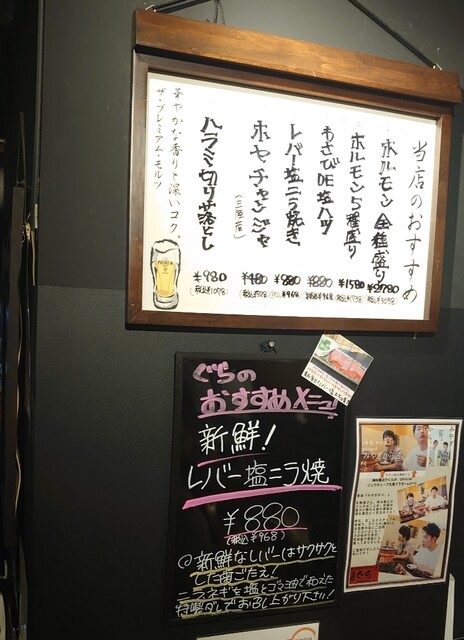 当店のおすすめ
ホルモン全種盛り
¥2780
(税込¥3058)
ホルモン5種盛り
¥1580
(税込¥1738)
わさびDE塩ハツ
¥880
(税込¥968)
レバー塩ニラ焼き
¥880
(税込¥968)
ホヤチャンジャ
(三陸産)
¥480
(税込¥528)
ハラミ切り落とし
¥980
(税込¥1078)
華やかな香りと深いコク。
ザ・プレミアム・モルツ
ぐらの
おすすめメニュー
新鮮!
レバー塩ニラ焼
¥880
(税込¥968)
@新鮮なレバーはサクサクと
した歯ごたえ!
ニラネギを塩とゴマ油で和えた
特製ダレでお召し上がり下さい!